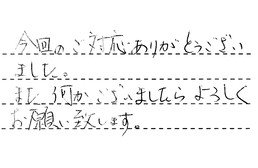 今回のご対応ありがとうござい
ました。
また何かございましたらよろしく
お願い致します。